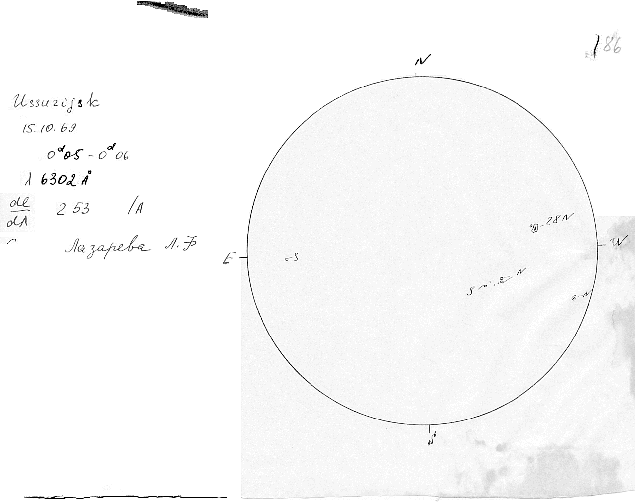 186
N
Ussurijsk
15.10.69
0ᵈ05 - 0ᵈ06
λ 6302 Å
dl/dλ 2 53 /A
Лазарева Л.Ф
28 N
W
E
S
S N
N
S